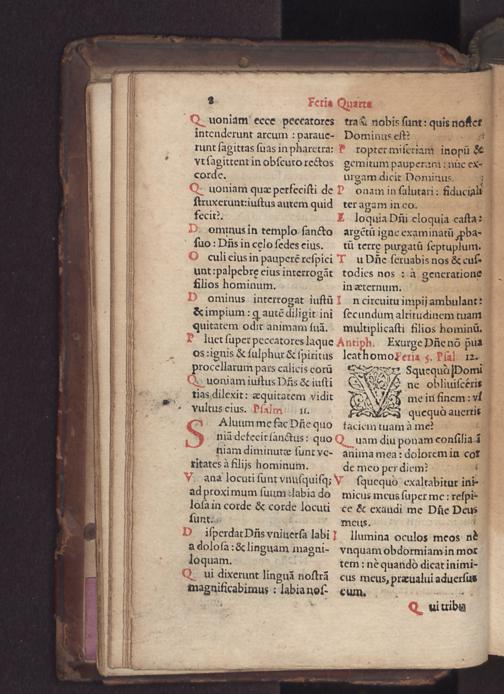 8
Feria Quarta
Quoniam ecce peccatores
intenderunt arcum : paraue-
runt sagittas suas in pharetra:
vt sagittent in obscuro rectos
corde.
Quoniam quæ perfecisti de
struxerunt: iustus autem quid
fecit?.
Dominus in templo sancto
suo : Dñs in cęlo sedes eius.
Oculi eius in pauperē respici
unt: palpebrę eius interrogāt
filios hominum.
Dominus interrogat iustū
& impium : q autē diligit ini
quitatem odit animam suā.
Pluet super peccatores laque
os : ignis & sulphur & spiritus
procellarum pars calicis eorū
Quoniam iustus Dñs & iusti
tias dilexit: æquitatem vidit
vultus eius. Psalm 11.
SAluum me fac Dñe quo
niā defecit sanctus : quo
niam diminutæ sunt ve-
ritates à filijs hominum.
Vana locuti sunt vnusquisq;
ad proximum suum : labia do
losa in corde & corde locuti
sunt.
Disperdat Dñs vniuersa labi
a dolosa : & linguam magni-
loquam.
Qui dixerunt linguā nostrā
magnificabimus : labia nos-
tra à nobis sunt : quis noster
Dominus est?
Propter miseriam inopū &
gemitum pauperum : nūc ex-
urgam dicit Dominus.
Ponam in salutari : fiducialí
ter agam in eo.
Eloquia Dñi eloquia casta :
argētū igne examinatū ,pba-
tū terrę purgatū septuplum.
Tu Dñe seruabis nos & cus-
todies nos : à generatione
in æternum.
In circuitu impij ambulant :
secundum altitudinem tuam
multiplicasti filios hominū.
Antiph. Exurge Dñe nō p̄ua
leat homo. Feria 5. Psal 12.
VSquequò Domi
ne obliuisceris
me in finem : vs
quequò auertis
faciem tuam à me?
Quam diu ponam consilia ī
anima mea : dolorem in cor
de meo per diem?
Vsquequò exaltabitur ini-
micus meus super me : respi-
ce & exaudi me Dñe Deus
meus.
Illumina oculos meos nè
vnquam obdormiam in mor
tem : nè quandò dicat inimi-
cus meus, præualui aduersus
eum.
Qui tribu